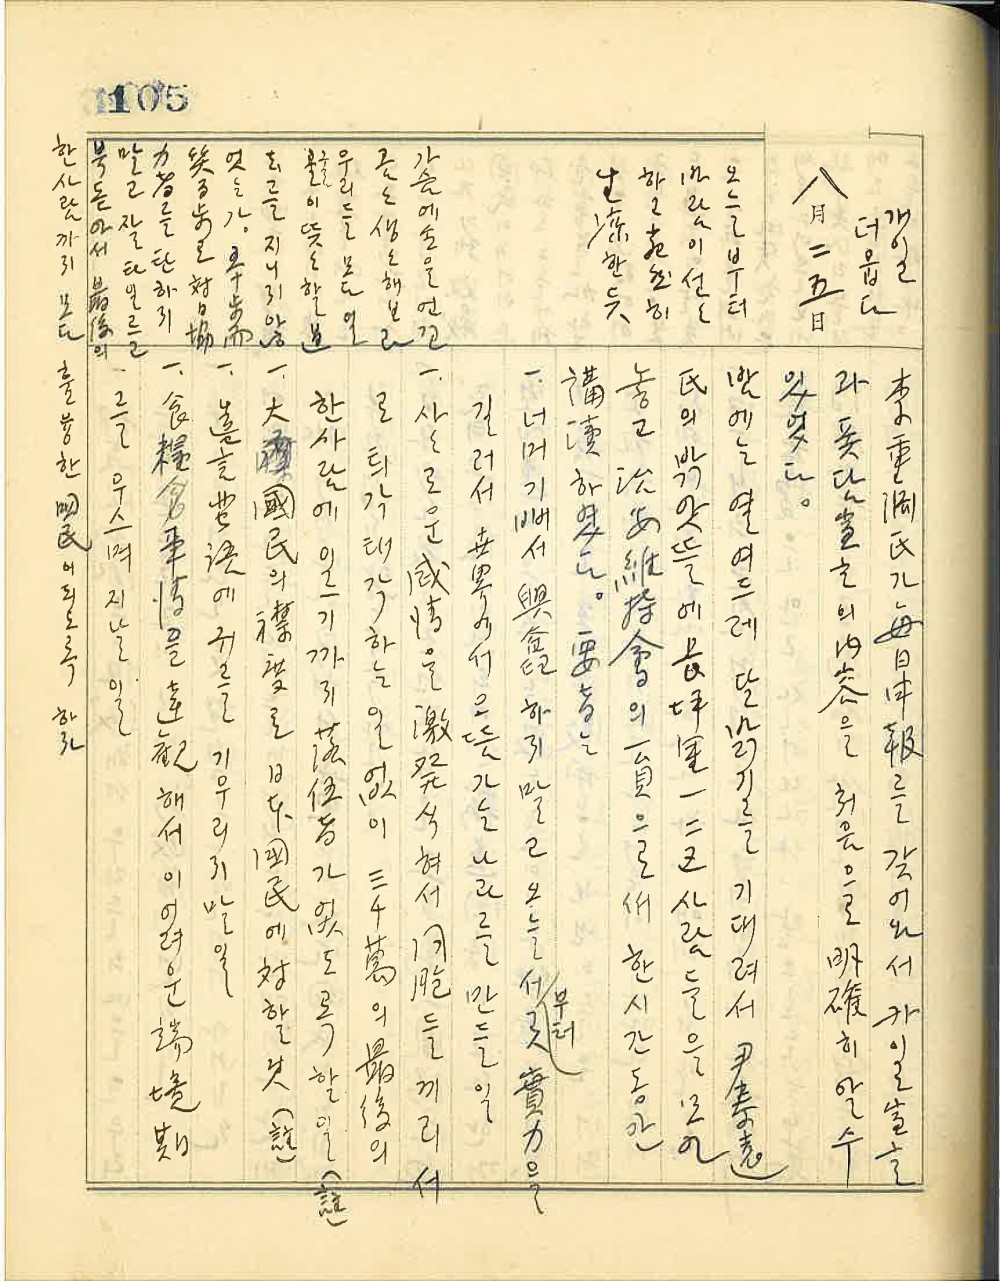 105
개일
더웁다
八月二五日
오늘부터
바람이 선선
하고 宛然히
生涼한듯
李重淵氏가 每日申報를 갖어와서 카이로宣言
과 폿담宣言의 內容을 처음으로 明確히 알 수
있었다。
밤에는 열여드레 달 밝기를 기대려서 尹壽遠
氏의 밖앗뜰에 長坪里 一二五 사람들을 모아
놓고 治安維持會의 一員으로써 한시간동안
講演하였다。 要旨는
一. 너머 기뻐서 興奮하지 말고 오늘부터 實力을
길러서 世界에서 으뜸가는 나라를 만들 일
一. 사사로운 感情을 激発식혀서 同胞들끼리 서
로 퇴각태각하는 일 없이 三千萬의 最後의
한사람에 일으기까지 落伍者가 없도록 할 일 (註)
一. 大國民의 襟度로 日本國民에 対할 것 (註)
一. 造言蜚語에 귀를 기우리지 말 일
一. 食糧事情을 達観해서 이 어려운 端境期
를 우스며 지날 일
가슴에 손을 언꼬
곰곰 생각해보라
우리들 모다 얼
굴이 뜻뜻할
를 지니지 않
엇는가。 五十步而
笑百步로 対日協
力者를 탄하지
말고 잘 타일르고
북돋아서 最後의
한사람까지 모다 훌륭한 國民이 되도록 하라